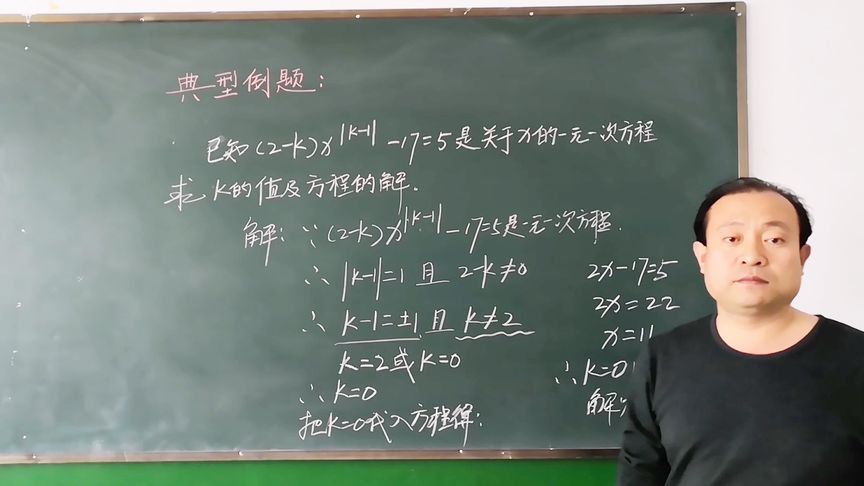 典型例题：
已知(2-k)x^|k-1| -17=5是关于x的一元一次方程
求 K的值及方程的解.
解：∵(2-k)x^|k-1| -17=5是一元一次方程.
∴ |k-1|=1 且 2-k≠0
∴ k-1=±1 且 k≠2
k=2或k=0
∴ k=0
把k=0代入方程得：
2x-17=5
2x=22
x=11
∴k=0
解